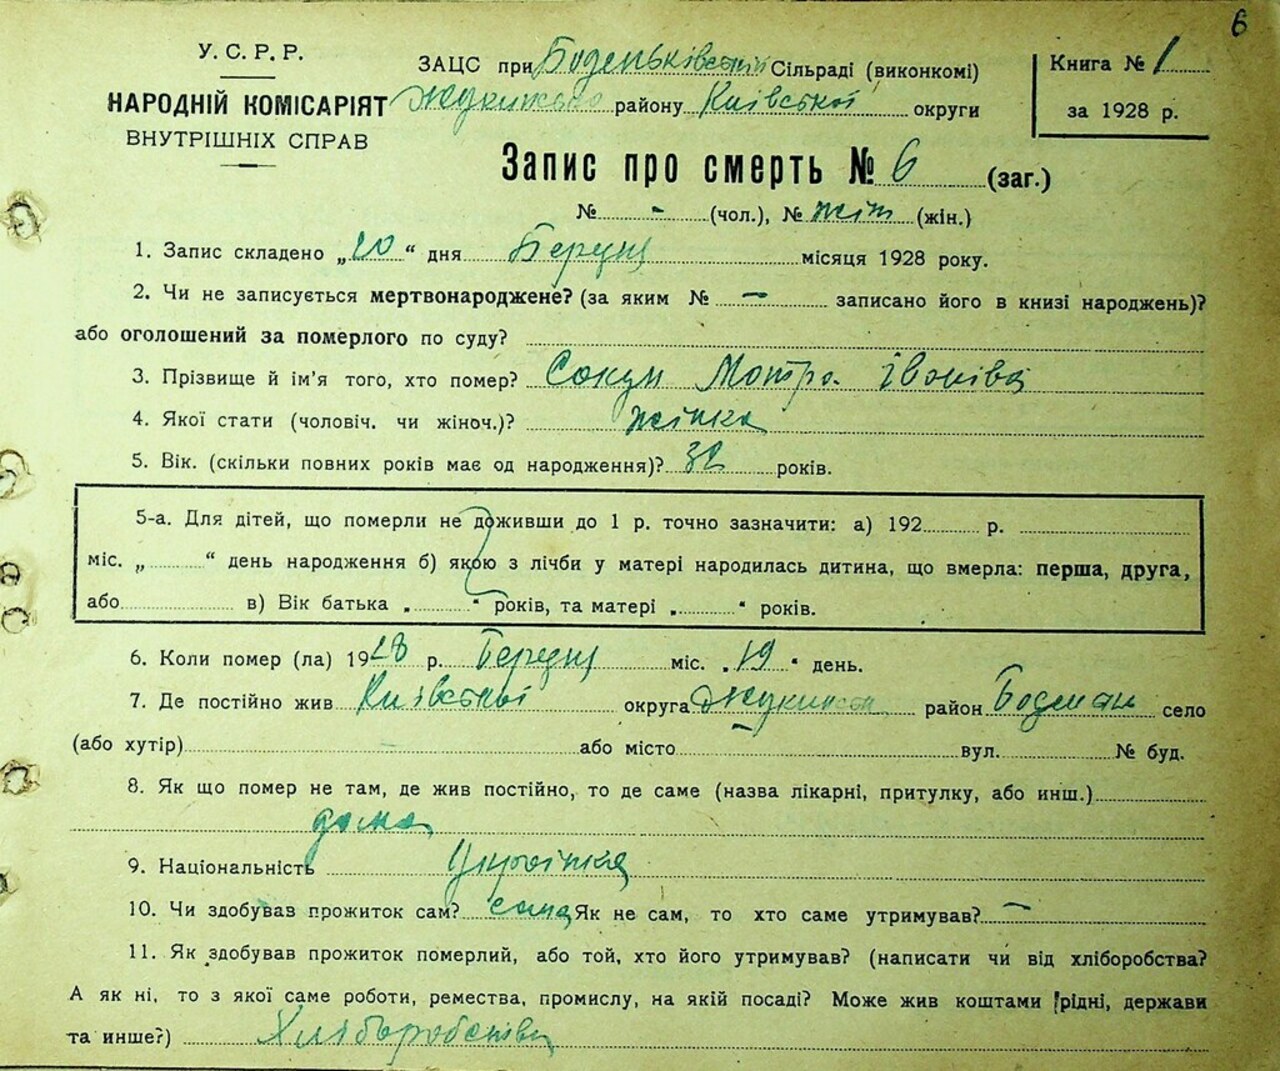 6
У. С. Р. Р.
НАРОДНІЙ КОМІСАРІЯТ
ВНУТРІШНІХ СПРАВ
ЗАЦС при Боденьківській Сільраді (виконкомі)
району Київської округи
Книга № 1
за 1928 р.
Запис про смерть № 6 (заг.)
№ - (чол.), № (жін.)
1. Запис складено „20“ дня Березня місяця 1928 року.
2. Чи не записується мертвонароджене? (за яким № — записано його в книзі народжень)?
або оголошений за померлого по суду?
3. Прізвище й ім'я того, хто помер? Сокун Мотра Іванівна
4. Якої стати (чоловіч. чи жіноч.)? жінка
5. Вік. (скільки повних років має од народження)? 32 років.
5-а. Для дітей, що померли не доживши до 1 р. точно зазначити: а) 192 р.
міс. „ “ день народження б) якою з лічби у матері народилась дитина, що вмерла: перша, друга,
або в) Вік батька „ “ років, та матері „ “ років.
6. Коли помер (ла) 1928 р. Березня міс. „19“ день.
7. Де постійно жив Київської округа район село
(або хутір) або місто — вул. № буд.
8. Як що помер не там, де жив постійно, то де саме (назва лікарні, притулку, або инш.)
дома
9. Національність Українка
10. Чи здобував прожиток сам? сама Як не сам, то хто саме утримував? —
11. Як здобував прожиток померлий, або той, хто його утримував? (написати чи від хліборобства?
А як ні, то з якої саме роботи, ремества, промислу, на якій посаді? Може жив коштами рідні, держави
та инше?) Хліборобства